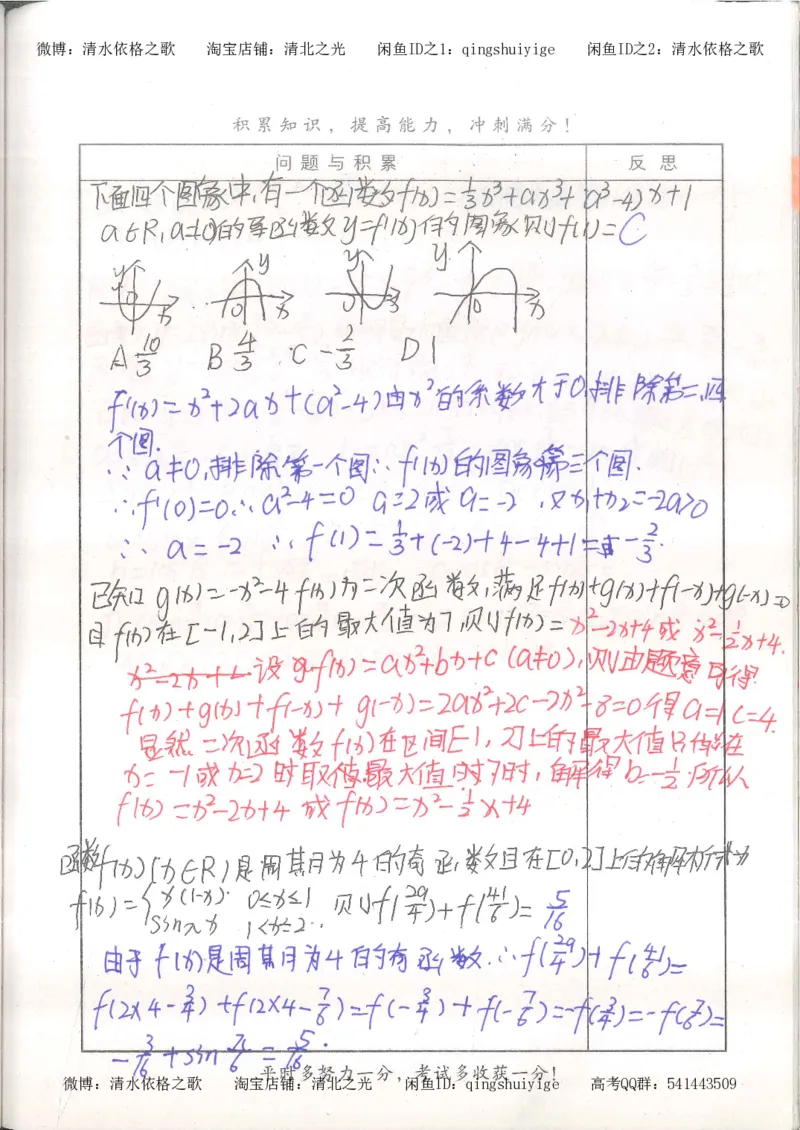 微博：清水依格之歌 淘宝店铺：清北之光 闲鱼ID之1：qingshuiyige 闲鱼ID之2：清水依格之歌
积累知识，提高能力，冲刺满分！
问题与积累 反思
下面四个图象中,有一个函数f(x)=1/3x³+ax³+(a³-4)x+1
a∈R,a≠0)的导函数y=f'(x)的图象,则f(1)=C
y x 0 y x 0 y x 0 y x 0
A 10/3 B 4/3 C -2/3 D 1
f'(x)=x²+2ax+(a²-4)由x²的系数大于0,排除第二,四
个图.
∵a≠0,排除第一个图∴f'(x)的图象第三个图.
∴f'(0)=0,∴a²-4=0 a=2或a=-2 ,又x₁+x₂=-2a>0
∴a=-2 ∴f(1)=1/3+(-2)+4-4+1=-2/3.
已知g(x)=-x²-4 f(x)为二次函数,满足f(x)+g(x)+f(-x)+g(-x)=0
且f(x)在[-1,2]上的最大值为7,则f(x)=x²-2x+4或x²-1/2x+4.
x²-2x+4 设f(x)=ax²+bx+c(a≠0),则由题意可得
f(x)+g(x)+f(-x)+g(-x)=2ax²+2c-2x²-8=0得a=1 c=4.
显然二次函数f(x)在区间[-1,2]上的最大值只能在
x=-1或x=2时取得,最大值时7时,解得b=-1/2,所以
f(x)=x²-2x+4或f(x)=x²-1/2x+4
函数f(x)(x∈R)是周期为4的奇函数且在[0,2]上的解析式为
f(x)={x(1-x) 0≤x≤1 则f(29/4)+f(41/6)=5/16
sinπx 1<x≤2
由于f(x)是周期为4的奇函数.∴f(29/4)+f(41/6)=
f(2×4-3/4)+f(2×4-7/6)=f(-3/4)+f(-7/6)=-f(3/4)=-f(7/6)=
-3/16+sinπ/6=5/16.
平时多努力一分,考试多收获一分!
微博：清水依格之歌 淘宝店铺：清北之光 闲鱼ID：qingshuiyige 高考QQ群：541443509